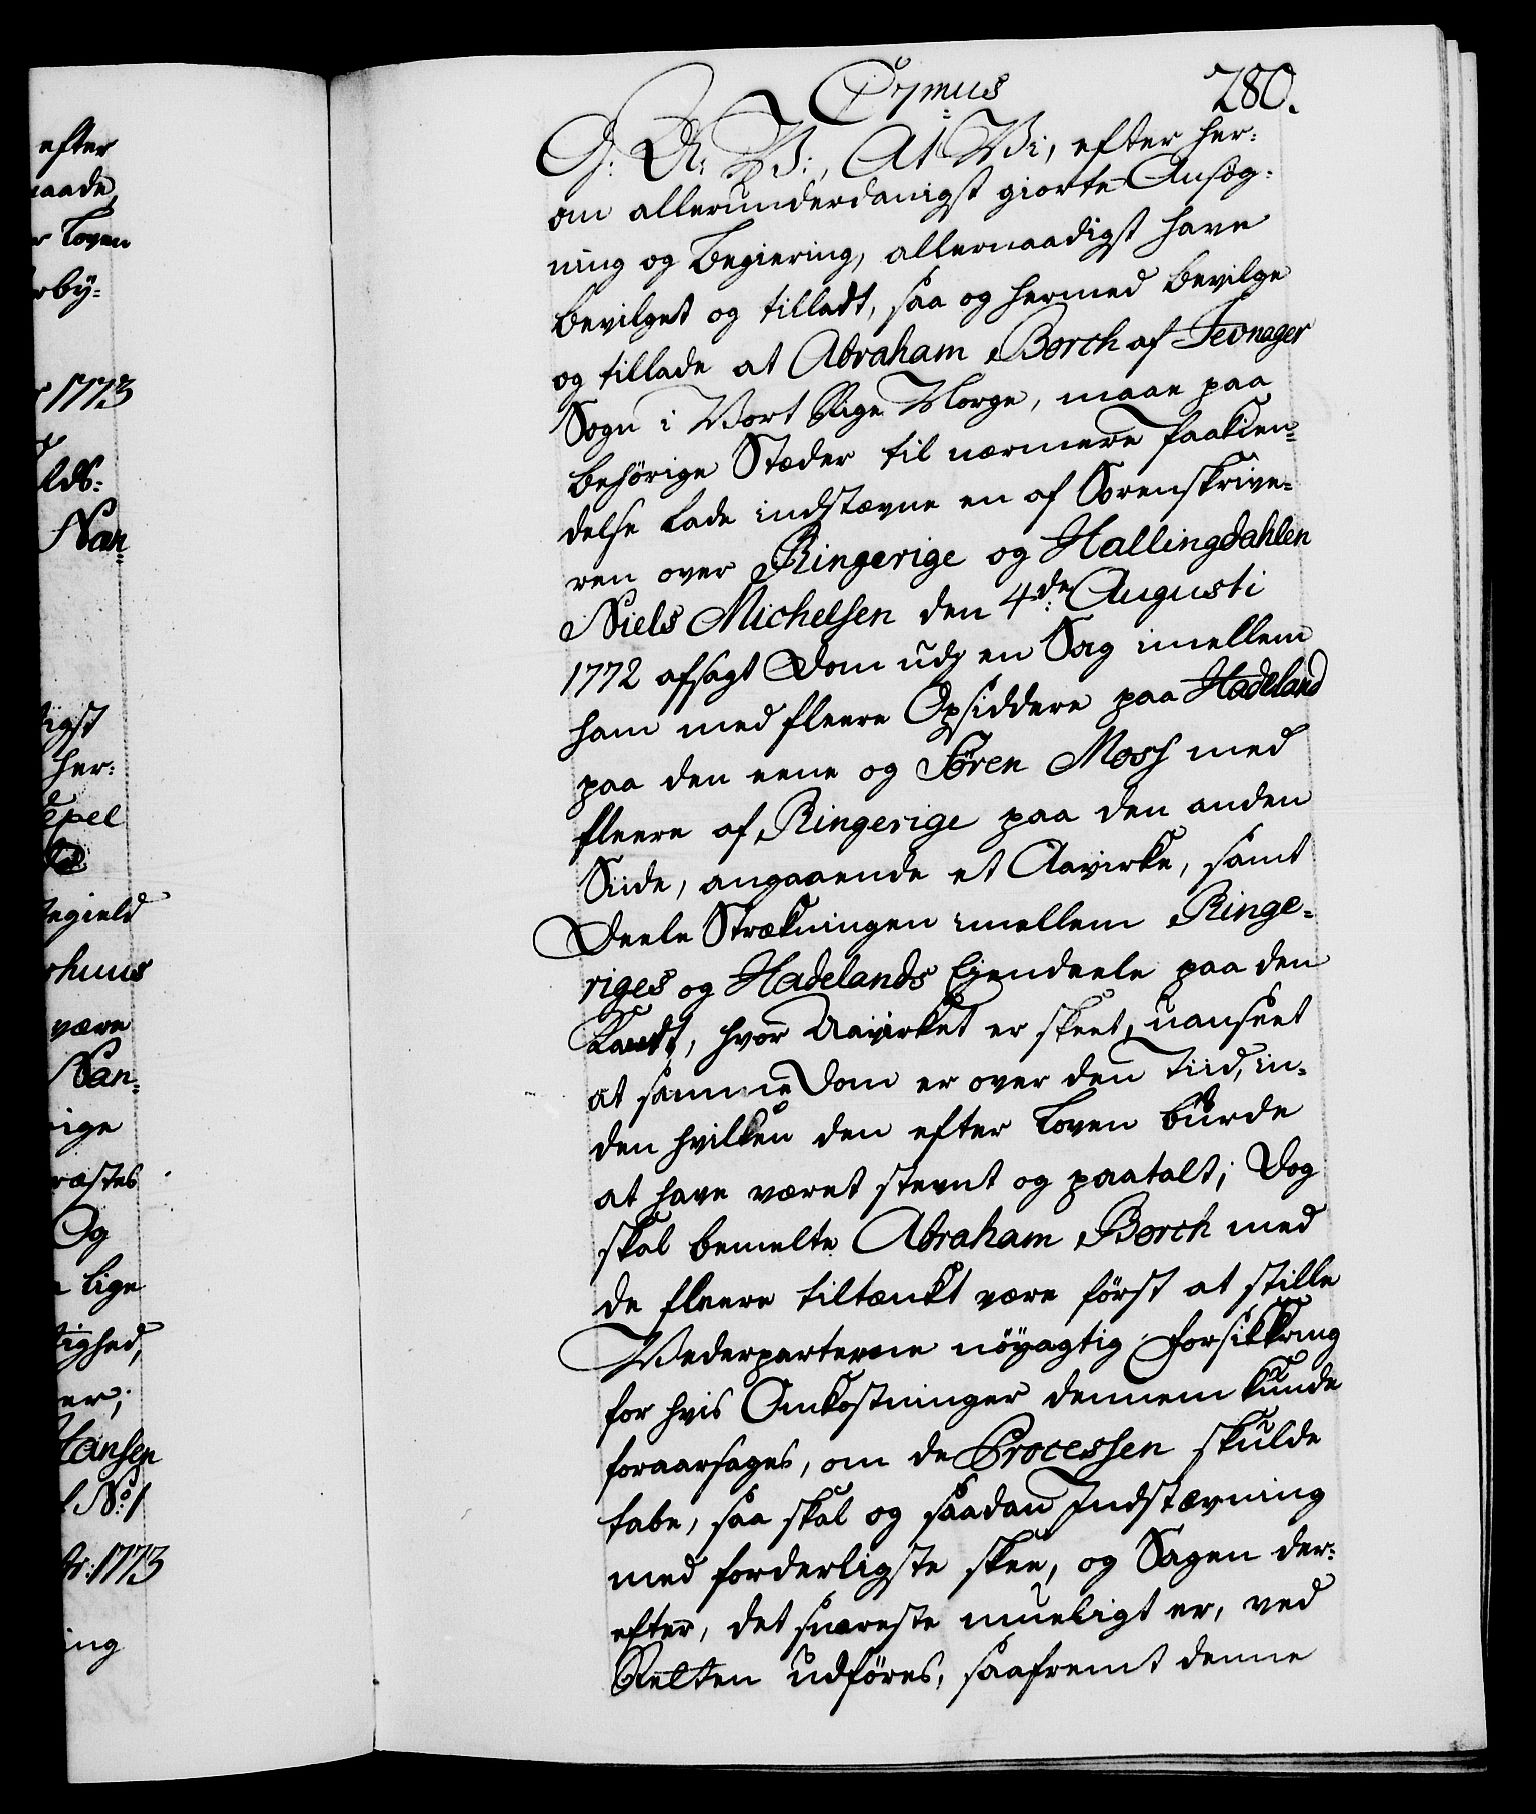 efter
naade
r Loven
rby-
1773
lds:
Nan
igst
her:
Sepel
tegield
rhuus
være
Nan-
rige
ræstes
Og
lige
tighed,
er;
Hansen
l No: 1
1773
ing
Cronus 280.
G: A: V:, At Vi, efter her-
om allerunderdanigst giorte Ansøg-
ning og Begiering, allernaadigst have
bevilget og tilladt, saa og hermed bevilge
og tillade at Abraham Borch af Jevnager
Sogn i Vort Rige Norge, maae paa
behørige Stæder til nærmere Paakien-
delse lade indstævne en af Sorenskrive-
ren over Ringerige og Hallingdahlen
Niels Michelsen den 4de Augusti
1772 afsagt Dom udj en Sag imellem
ham med fleere Opsiddere paa Hadeland
paa den eene og Søren Mosf med
fleere af Ringerige paa den anden
Siide, angaaende et Aavirke, samt
Deele Strækningen imellem Ringe-
riges og Hadelands Ejendeele paa den
Kandt, hvor Aavirket er skeet, uanseet
at samme Dom er over den Tiid, in-
den hvilken den efter Loven burde
at have været stevnt og paatalt; Dog
skal bemelte Abraham Borch med
de fleere tiltænkt være først at stille
Vederparterne nöyagtig Forsikkring
for hvis Omkostninger dennem kunde
foraarsages, om de Processen skulde
tabe, saa skal og saadan Indstævning
med forderligste skee, og Sagen der-
efter, det snareste mueligt er, ved
Retten udføres, saafremt denne